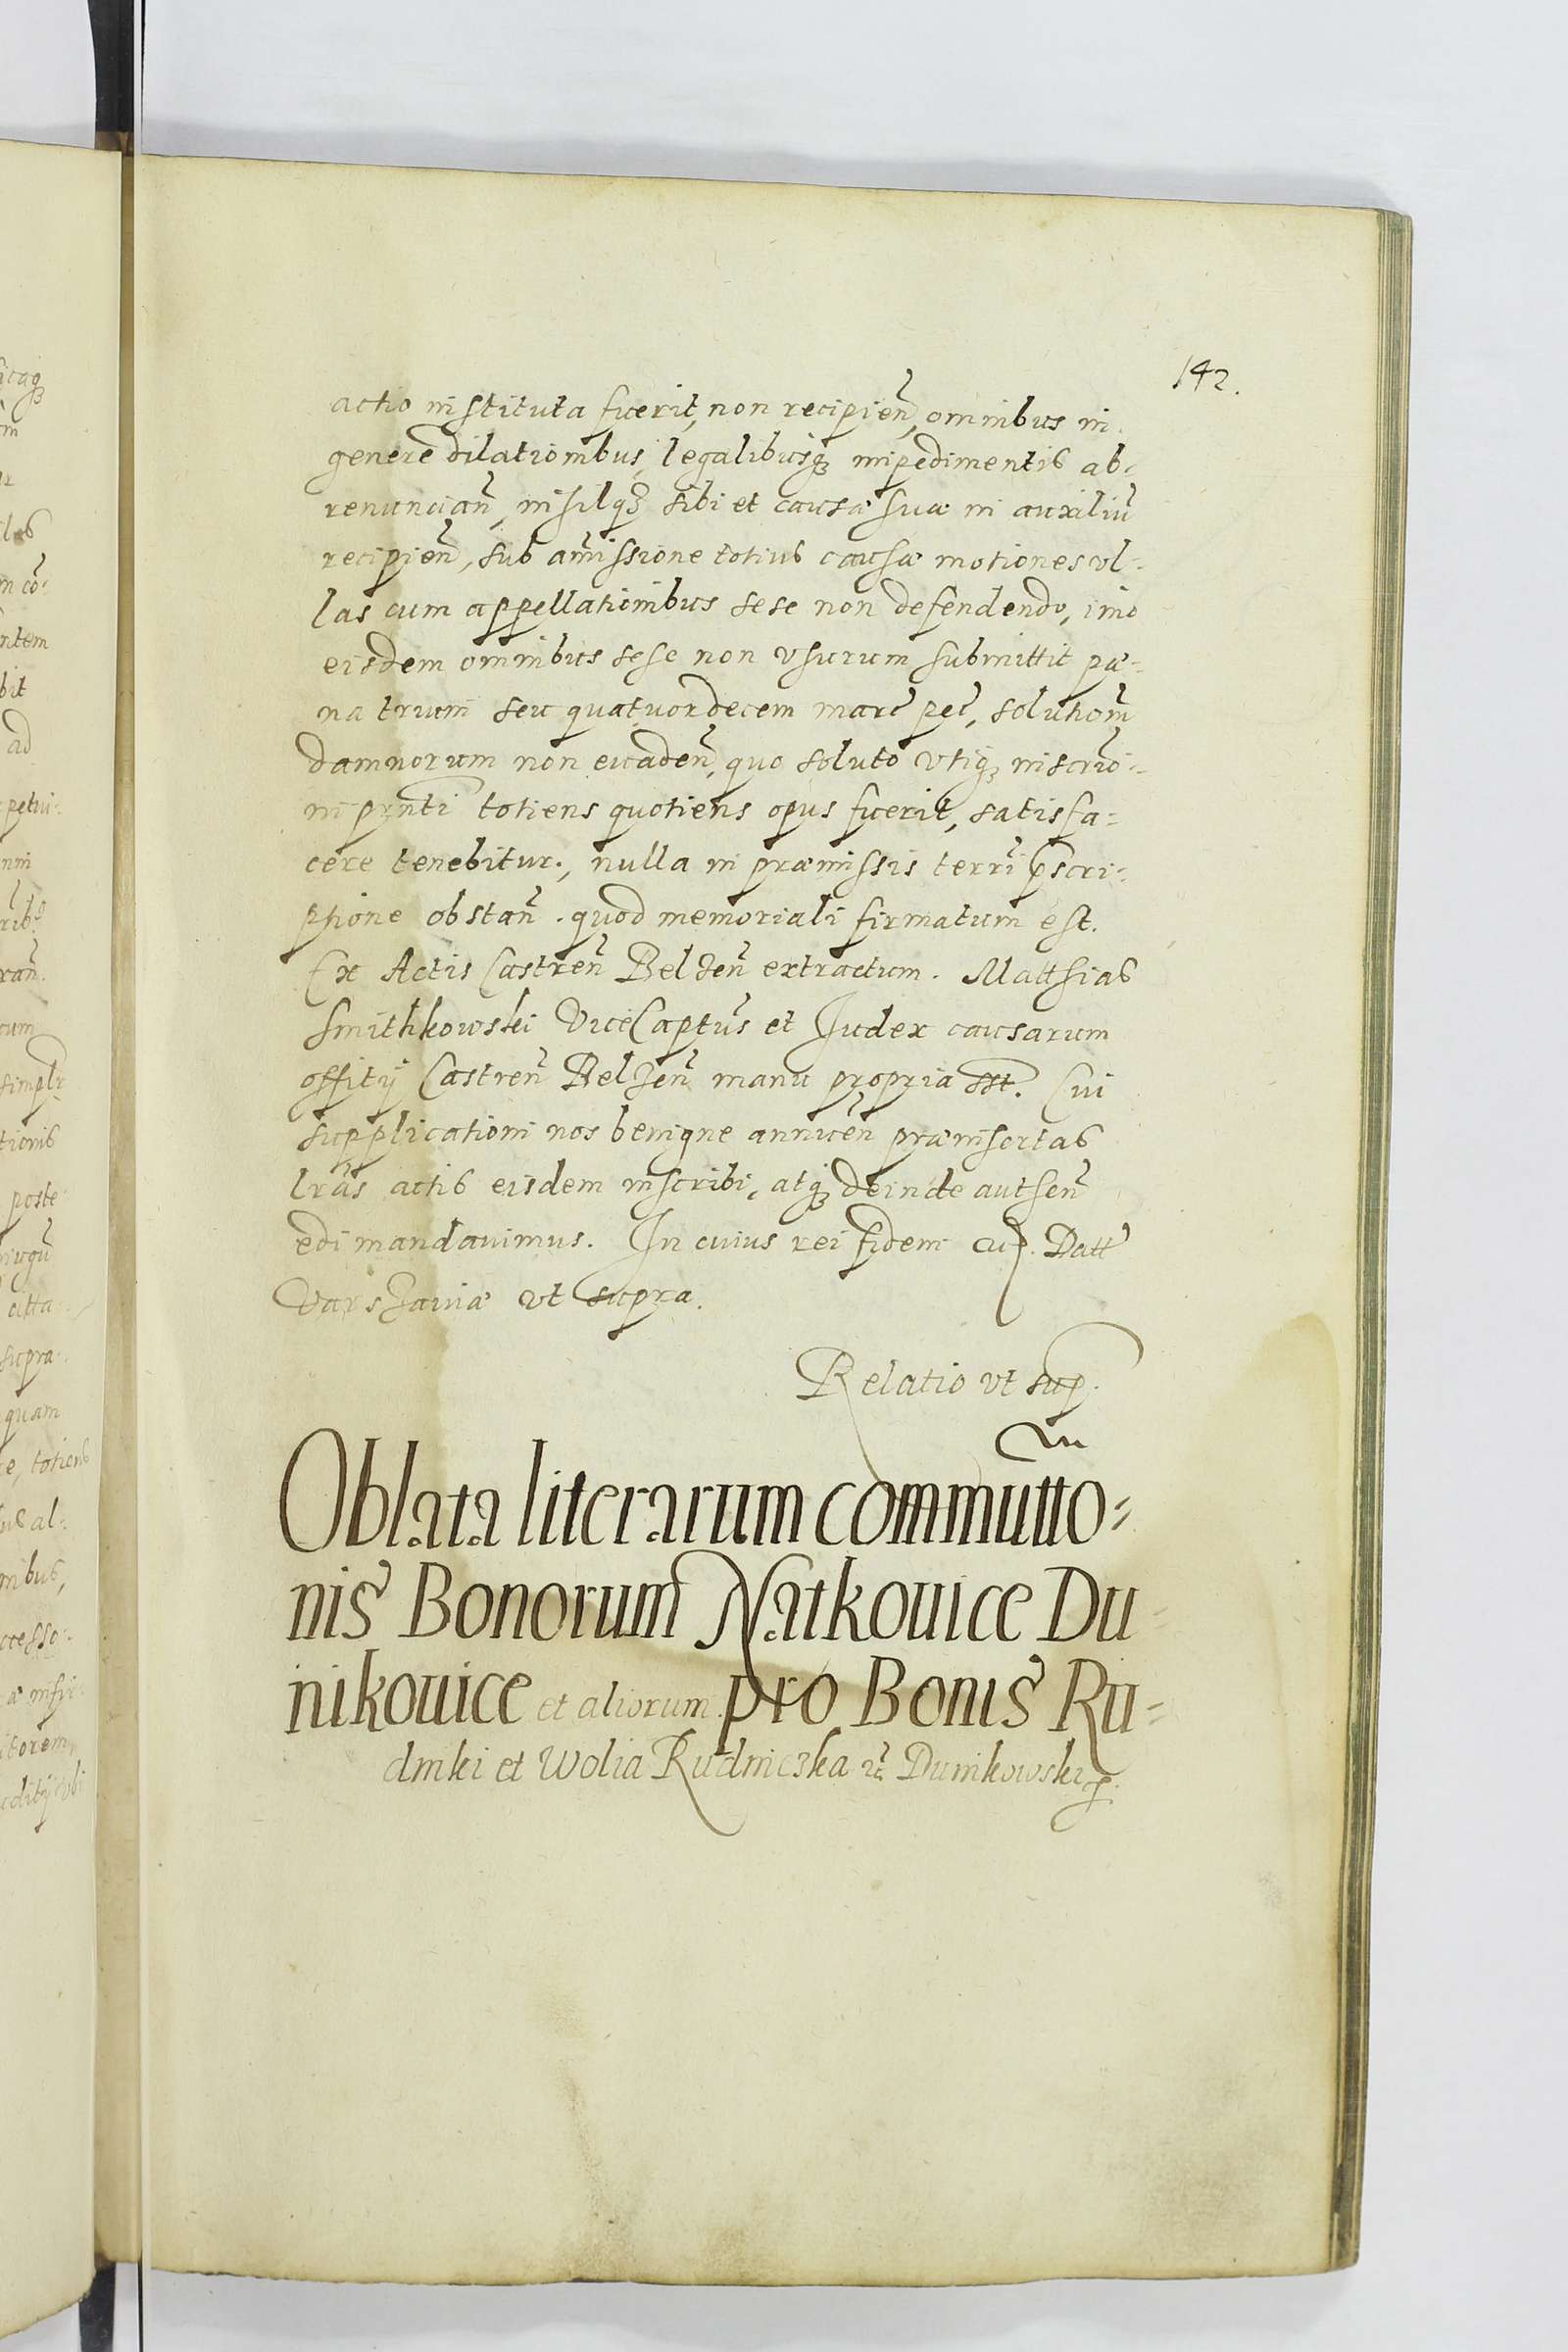 142.
actio instituta fuerit, non recipien̄, omnibus in
genere dilationibus, legalibusq₃ impedimentis ab-
renuncian̄, nihilq₃ sibi et causæ suæ in auxiliū
recipien̄, sub amissione totius causæ motiones vl-
las cum appellationibus sese non defendendo, imo
eisdem omnibus sese non vsurum submittit pæ-
na trium seu quatuordecem marc̄ pec̄, solution̄
damnorum non euaden̄, quo soluto vtiq₃ inscrio-
ni pn̄ti totiens quotiens opus fuerit, satisfa-
cere tenebitur., nulla in præmissis terrī pscri-
ptione obstan̄. quod memoriali firmatum est.
Ex Actis Castren̄ Belzen̄ extractum. Matthias
Smithkowski ViceCaptūs et Judex causarum
offitij Castren̄ Belzen̄ manu propria sst. Cui
supplicationi nos benigne annuen̄ præinsertas
lrās actis eisdem inscribi, atq₃ deinde authen̄
edi mandauimus. In cuius rei fidem cu. Datt̄
Varszauiæ vt supra.
Relatio vt sup.
Oblata literarum commutto-
nis Bonorum Natkouice Du-
nikouice et aliorum pro Bonis Ru-
dniki et Wolia Rudniczka rc̄ Dunikowski